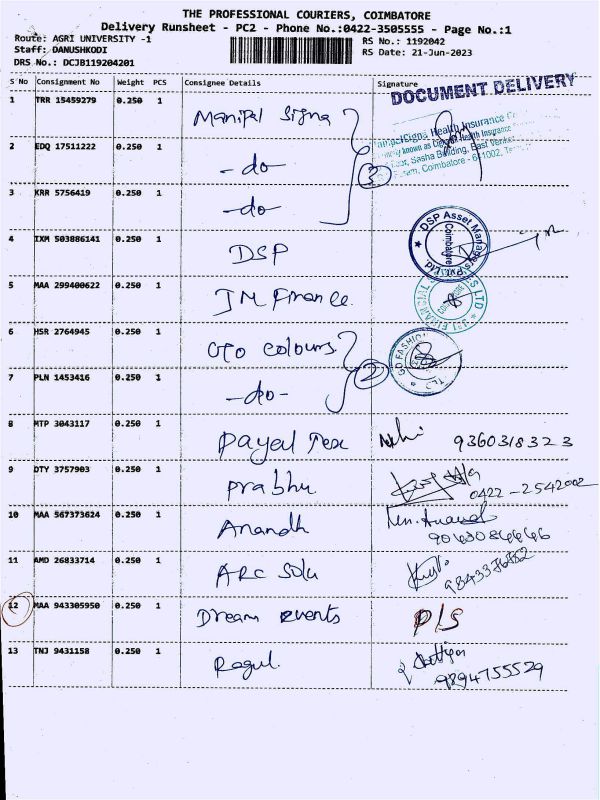 THE PROFESSIONAL COURIERS, COIMBATORE
Delivery Runsheet - PC2 - Phone No.:0422-3505555 - Page No.:1
Route: AGRI UNIVERSITY -1
Staff: DANUSHKODI
DRS No.: DCJB119204201
RS No.: 1192042
RS Date: 21-Jun-2023
S No Consignment No Weight PCS Consignee Details Signature
DOCUMENT DELIVERY
1 TRR 15459279 0.250 1 Manipal Signa
Health Insurance
known as Health Insurance
Sasha Building, East
Coimbatore - 641002
2 EDQ 17511222 0.250 1 -do-
3
3 KRR 5756419 0.250 1 -do-
4 IXM 503886141 0.250 1 DSP
DSP Asset Managers Pvt. Ltd.
Coimbatore
5 MAA 299400622 0.250 1 JM Finance
6 HSR 2764945 0.250 1 Go colours
GO FASHION
2
7 PLN 1453416 0.250 1 -do-
8 MTP 3043117 0.250 1 Payal Tex 9360318323
9 DTY 3757903 0.250 1 Prabhu
0422-2542002
10 MAA 567373624 0.250 1 Anandh
11 AMD 26833714 0.250 1 ARC Solu
12 MAA 943305950 0.250 1 Dream events P/S
13 TNJ 9431158 0.250 1 Ragul
9894755529